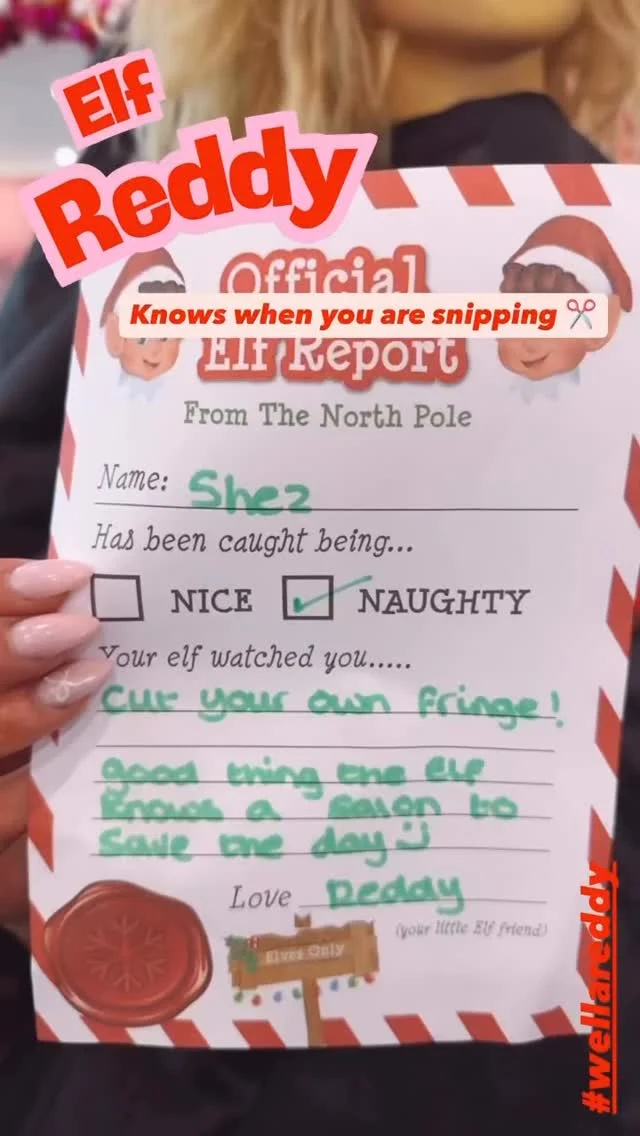 Elf
Reddy
Official
Knows when you are snipping
Elf Report
From The North Pole
Name: Shez
Has been caught being...
NICE NAUGHTY
Your elf watched you.....
Cut your own fringe!
good thing the Elf
knows a salon to
save the day
Love Reddy
(your little Elf friend)
Elves Only
#wellareddy